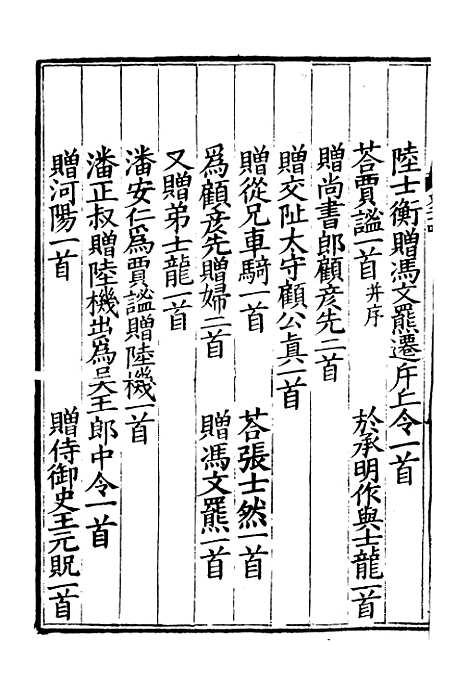 陸士衡贈馮文羆遷斥丘令一首
荅賈謐一首并序　於承明作與士龍一首
贈尚書郎顧彥先二首
贈交阯太守顧公真一首
贈從兄車騎一首　荅張士然一首
為顧彥先贈婦二首　贈馮文羆一首
又贈弟士龍一首
潘安仁為賈謐贈陸機一首
潘正叔贈陸機出為吳王郎中令一首
贈河陽一首　贈侍御史王元貺一首